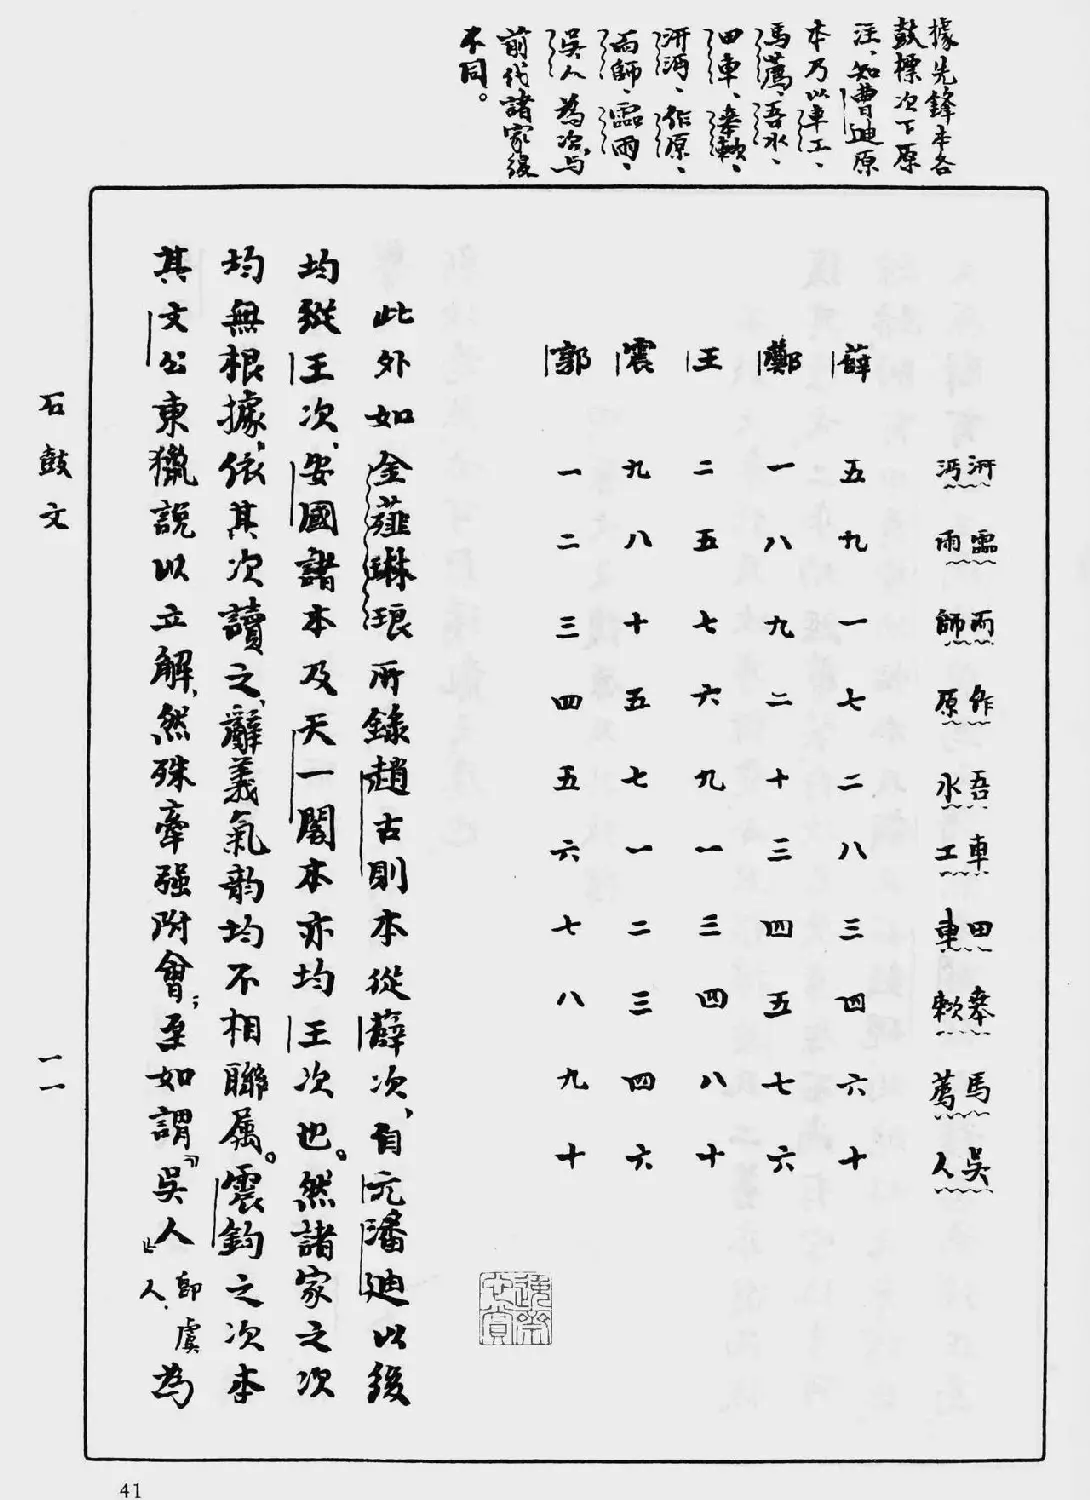 據先鋒本各
鼓標次下原
注、知曹迪原
本乃以車工、
馬薦、吾水、
田車、𠦪敕、
汧沔、作原、
而師、霝雨、
吳人為次、与
前代諸家俱
不同。
汧沔 霝雨 而師 作原 吾水 車工 田車 𠦪敕 馬薦 吳人
薛 五 九 一 七 二 八 三 四 六 十
鄭 一 八 九 二 十 三 四 五 七 六
王 二 五 七 六 九 一 三 四 八 十
震 九 八 十 五 七 一 二 三 四 六
郭 一 二 三 四 五 六 七 八 九 十
此外如金薤琳琅所錄趙古則本從薛次、自元潘迪以後
均從王次、安國諸本及天一閣本亦均王次也。然諸家之次
均無根據、依其次讀之、辭義氣韵均不相聯屬。震鈞之次本
其文公東獵說以立解、然殊牽强附會；至如謂「吳人」即虞人、為
石鼓文
一一
41